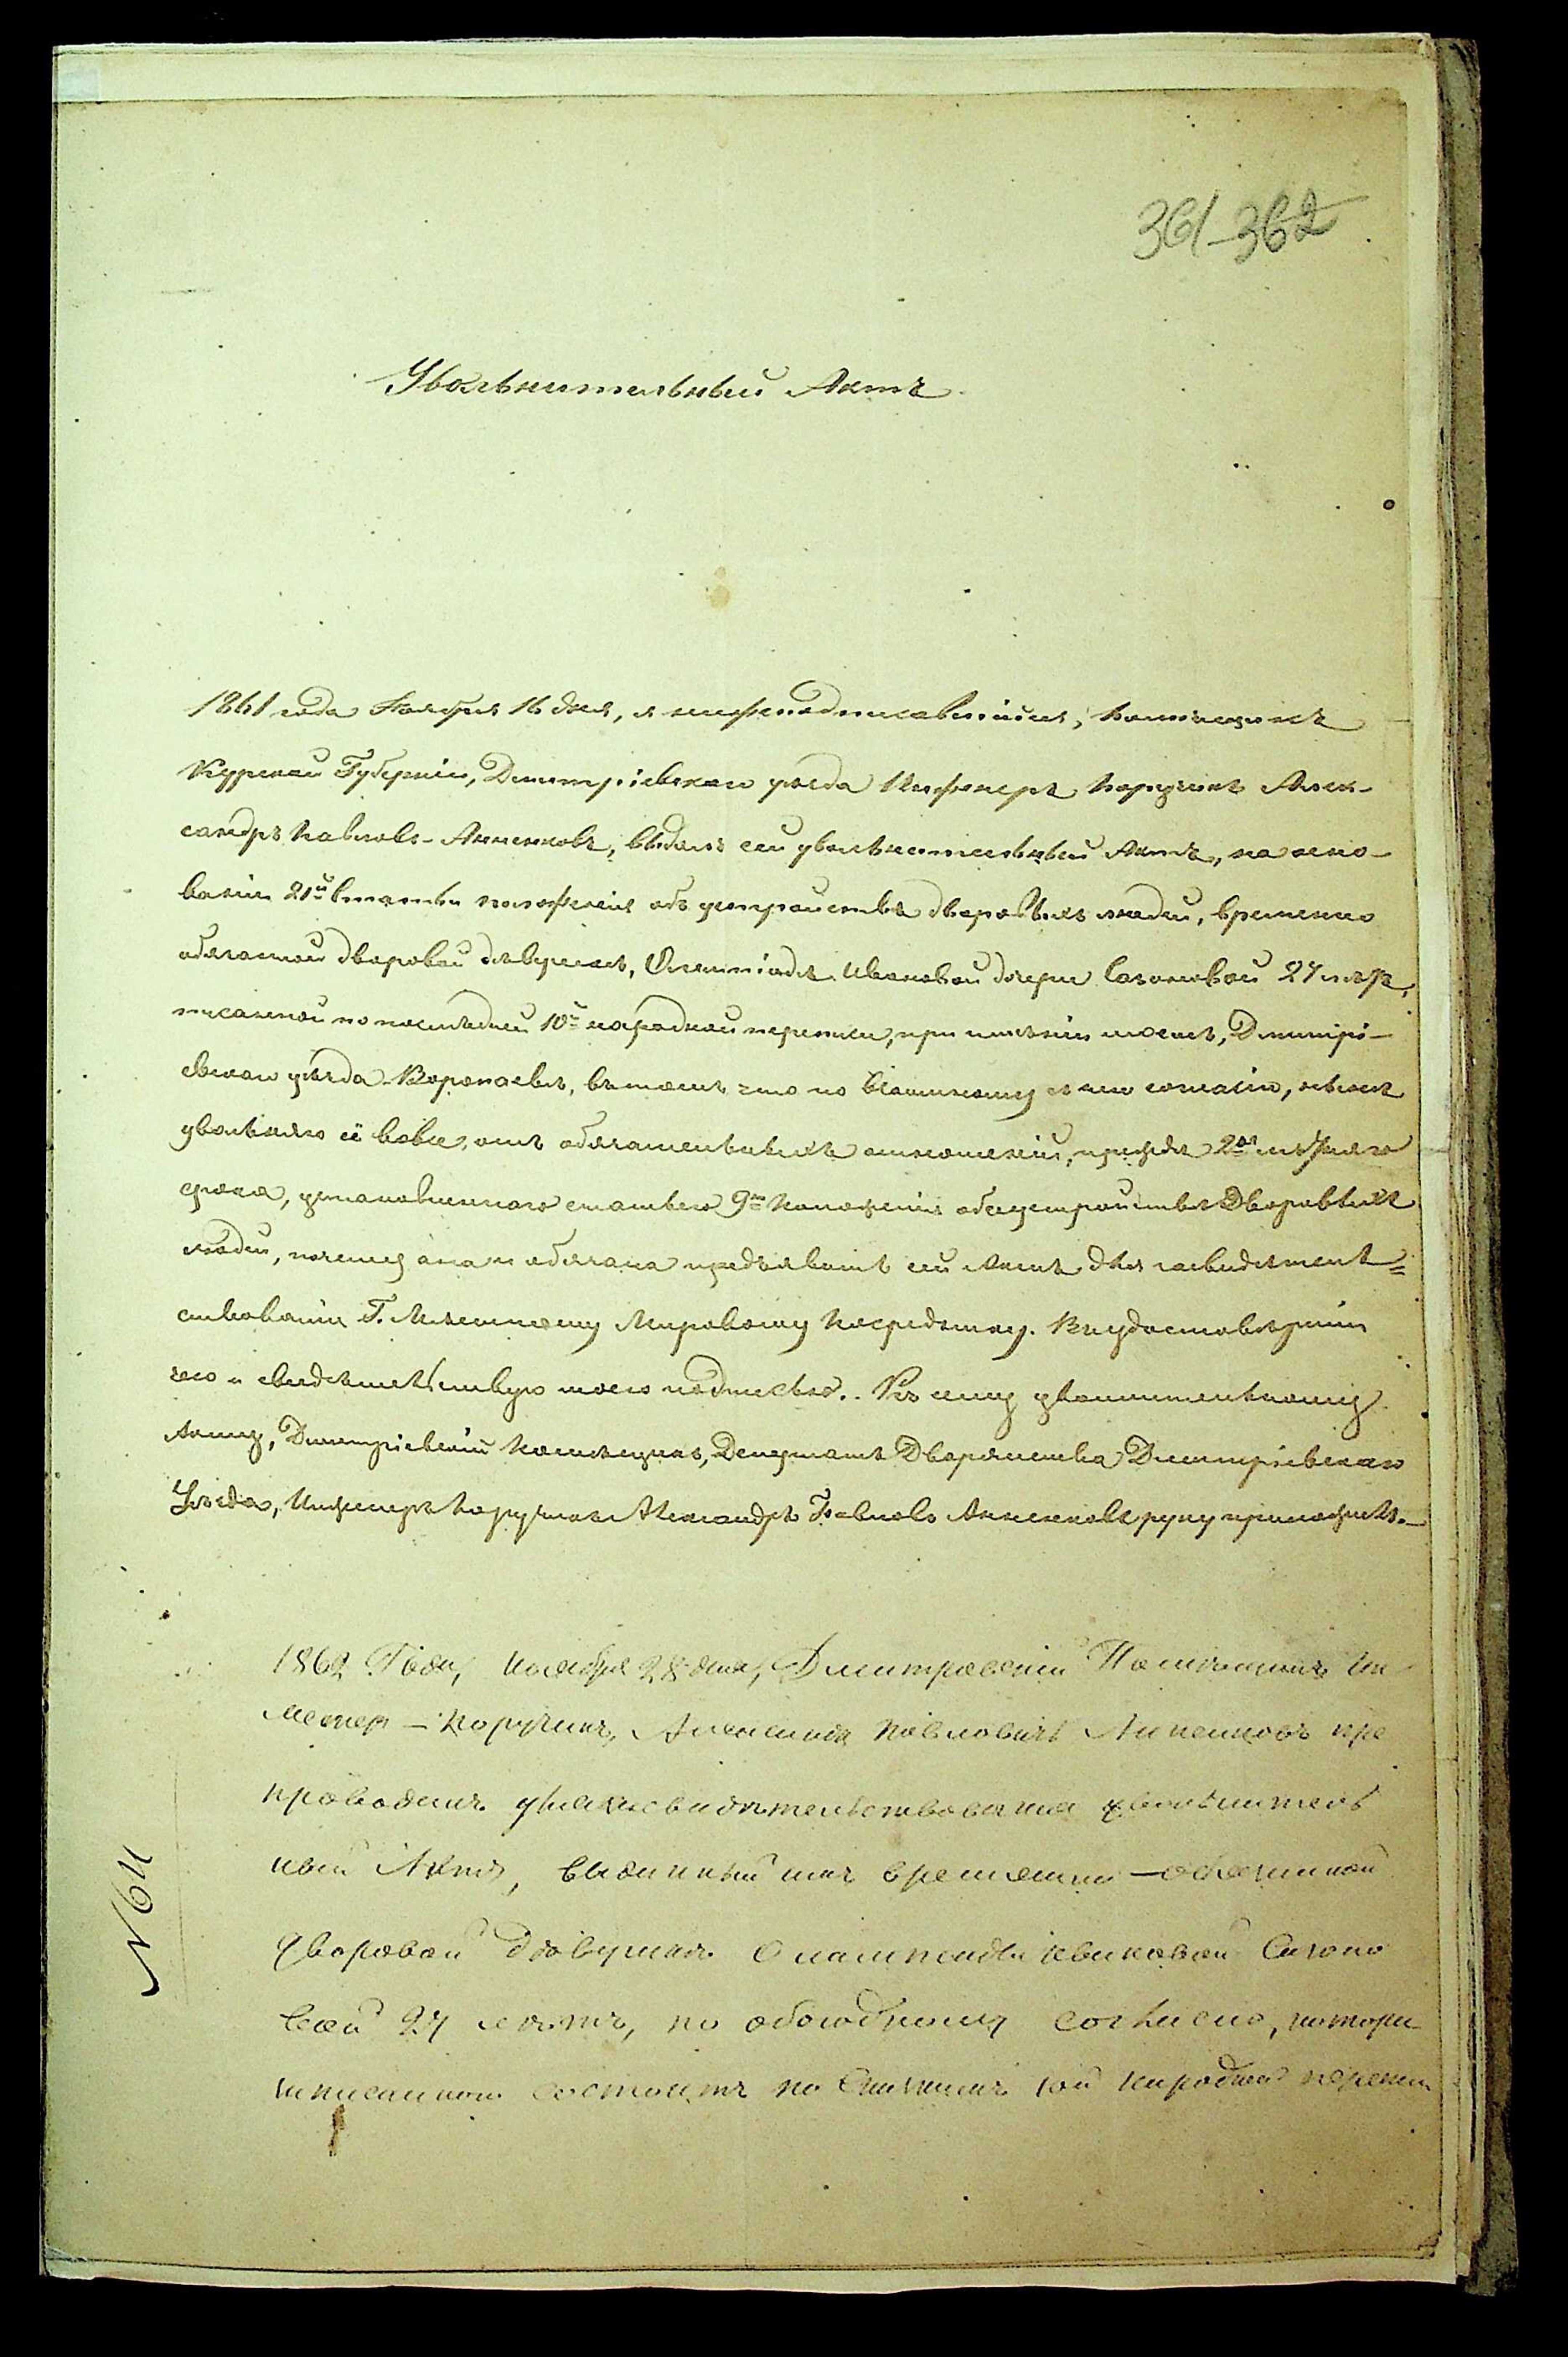 361-362
Увольнительный Актъ
1861 года Ноября 16 дня, я нижеподписавшійся, помѣщикъ
Курской Губерніи, Дмитріевскаго уѣзда Инженеръ Поручикъ Алек-
сандръ Павловъ-Анненковъ, выдалъ сей увольнительный Актъ, на осно-
ваніи 21й статьи положенія объ устройствѣ дворовыхъ людей, временно
обязанной дворовой дѣвушкѣ, Олимпіадѣ Ивановой дочери Сазоновой 24 лѣтъ,
писанной по послѣдней 10й народной переписи, при имѣніи моемъ, Дмитрі-
евскаго уѣзда Воропаевѣ, въ томъ что по взаимному съ нею согласію,
увольняю её вовсе отъ обязательныхъ отношеній, прежде 2хъ лѣтняго
срока, установленнаго статьею 9ю Положенія объ устройствѣ Дворовыхъ
людей, почему она и обязана предъявить сей Актъ для засвидѣтель=
ствованія Г. Мѣстному Мировому Посреднику. Въ удостовѣреніи
чего и свидѣтельствую моею подписью. Къ сему увольнительному
Акту, Дмитріевскій Помѣщикъ, Депутатъ Дворянства Дмитріевскаго
Уѣзда, Инженеръ Поручикъ Александръ Павловъ Анненковъ руку приложилъ.
1862 Года, Ноября 28 дня, Дмитровскій Помѣщикъ Ин
женер-Поручикъ, Павловичъ Анненковъ пре
проводилъ увольнитель
ный Актъ, выданный имъ временно-обязанной
дворовой дѣвушкѣ Олимпіадѣ Ивановой Сазоно
вой 24 лѣтъ, по обоюдному согласію,
записанною состоитъ по 10й народной переписи
№ 64